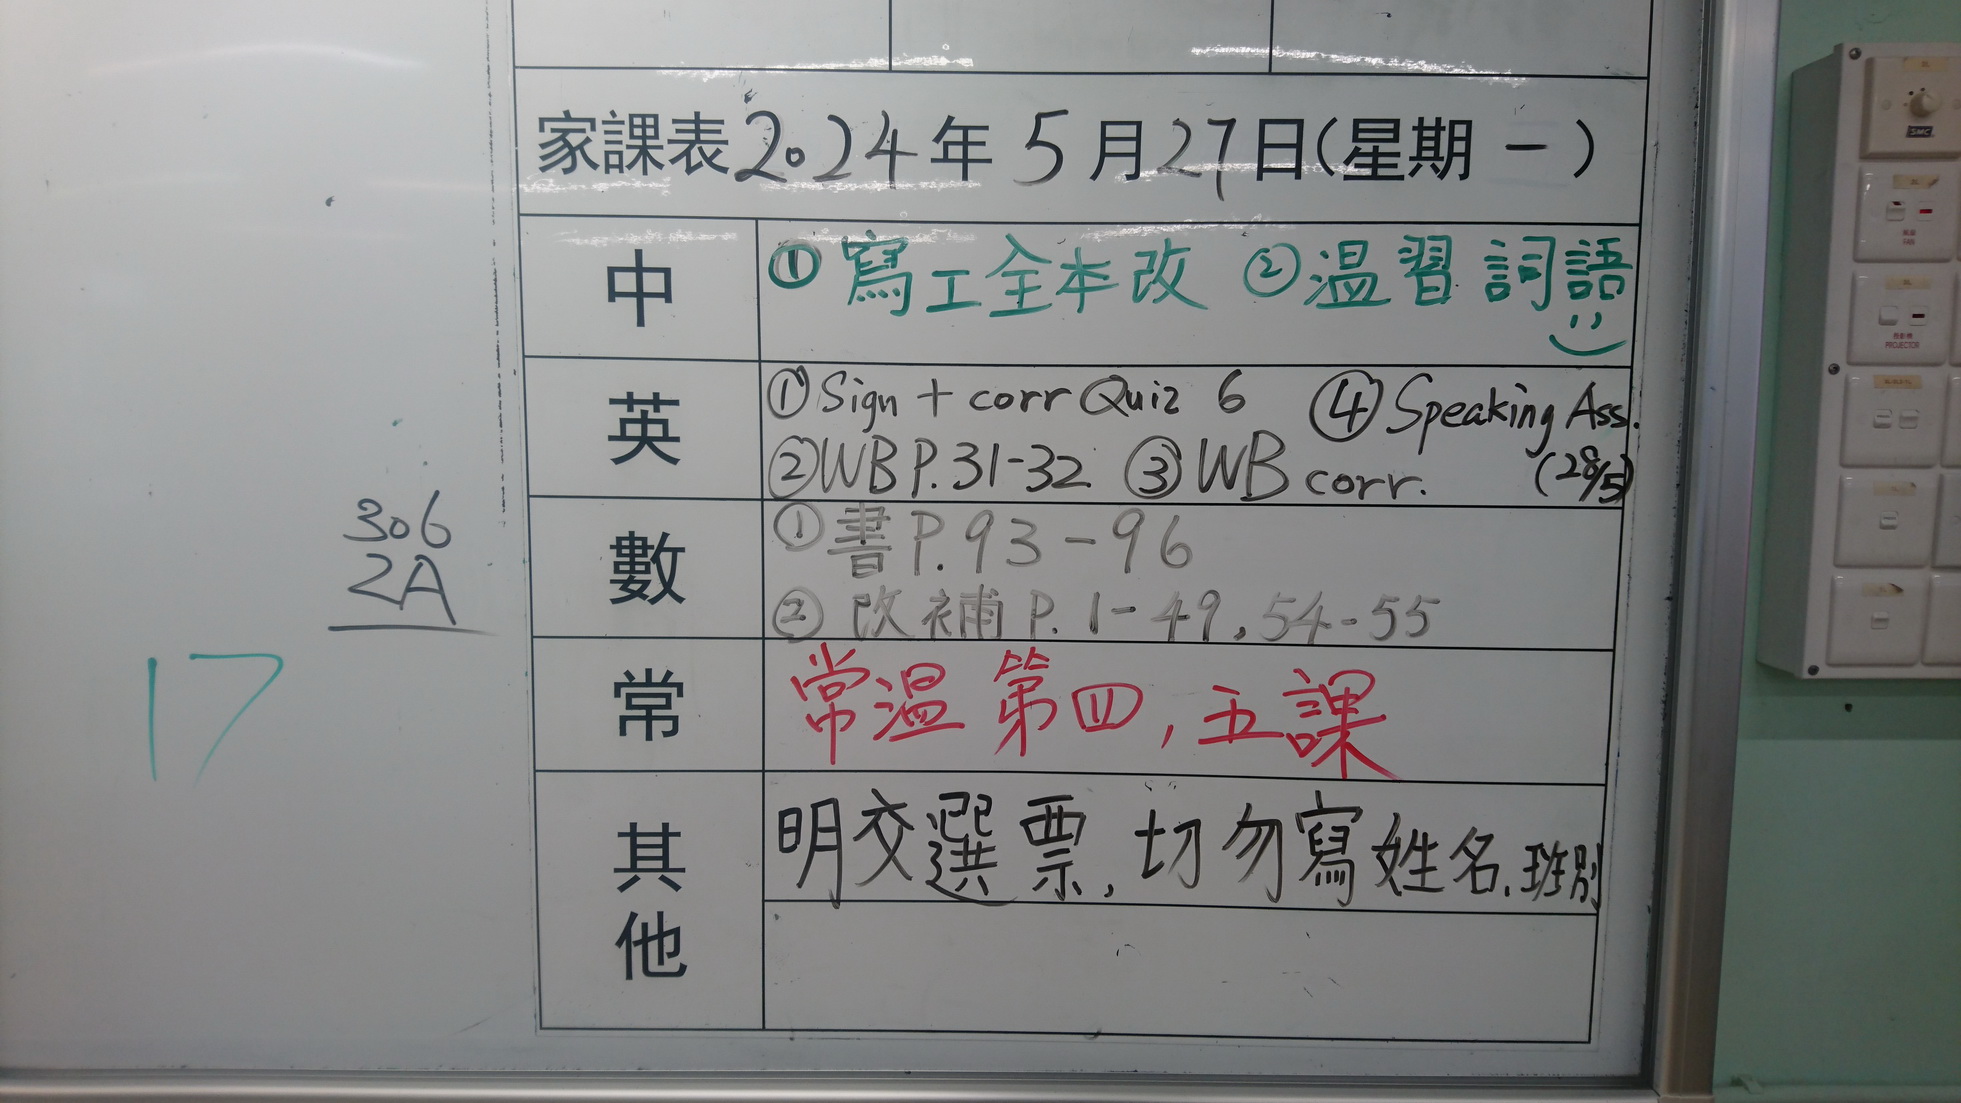 家課表2024年5月27日(星期一)
中
①寫工全本改 ②温習詞語
英
①Sign + corr Quiz 6 ④Speaking Ass.
②WB P.31-32 ③WB corr. (28/5)
數
①書P.93-96
②改補P.1-49,54-55
常
常温第四,五課
其他
明交選票,切勿寫姓名,班別
306
2A
17
SMC
FAN
PROJECTOR